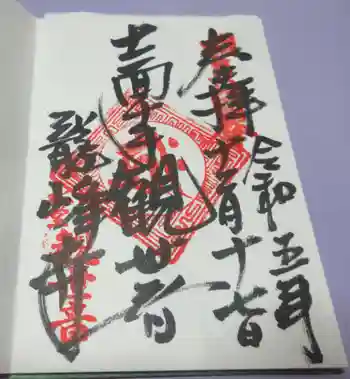 奉拝
令和五年
十二月十七日
十一面千手観世音
龍峰寺